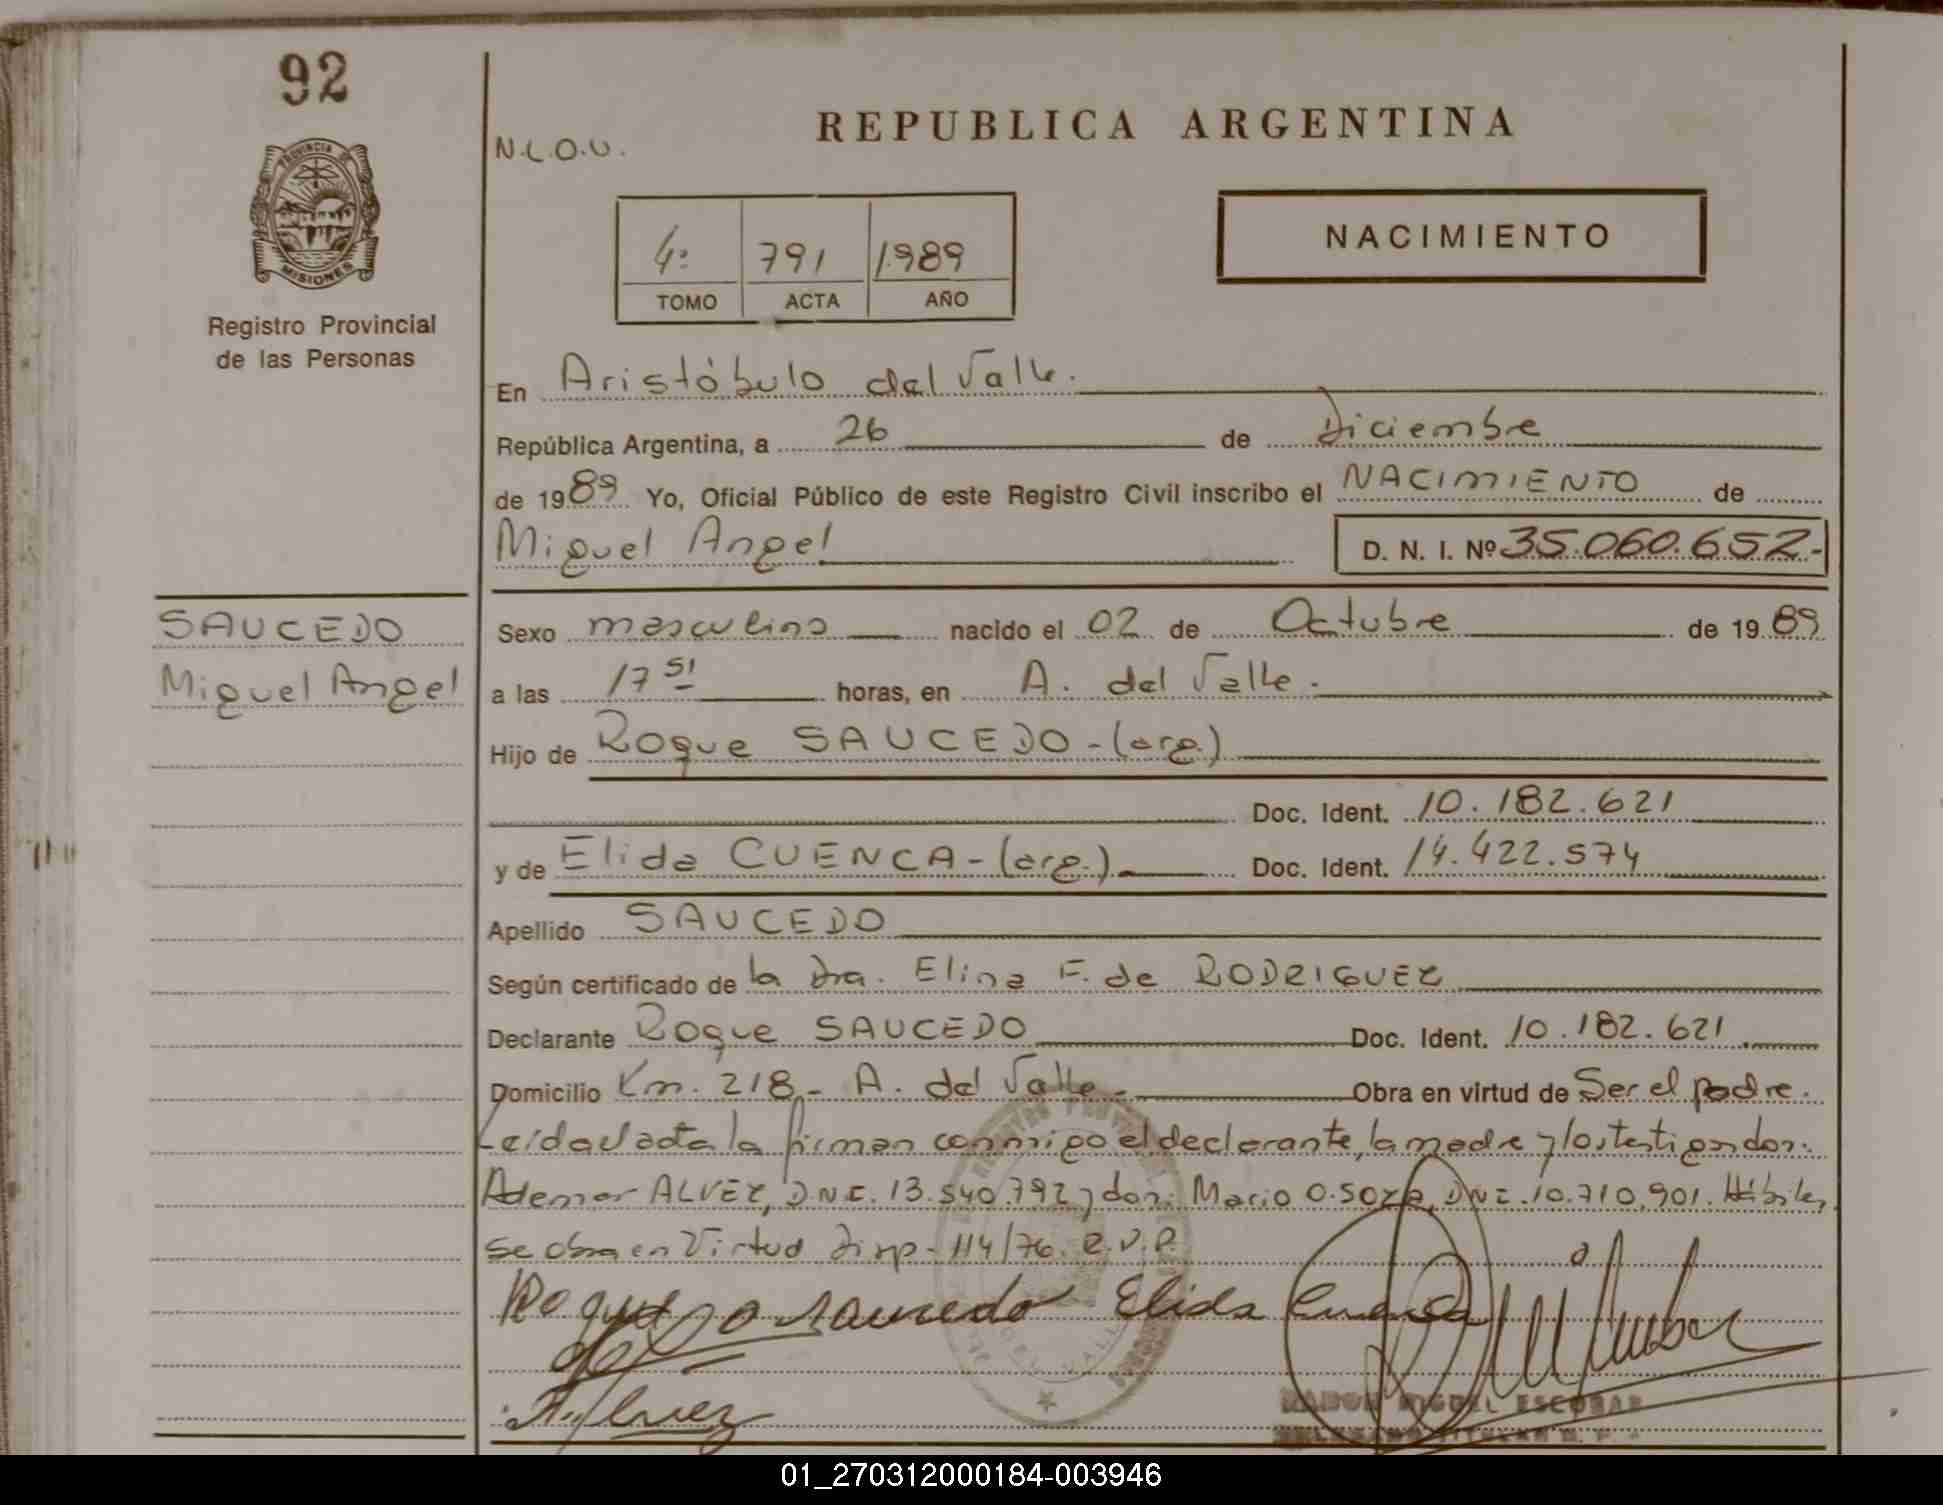 92
PROVINCIA DE
MISIONES
Registro Provincial
de las Personas
REPUBLICA ARGENTINA
N.L.O.U.
4º 791 1989
TOMO ACTA AÑO
NACIMIENTO
En Aristóbulo del Valle.
República Argentina, a 26 de Diciembre
de 1989 Yo, Oficial Público de este Registro Civil inscribo el NACIMIENTO de
Miguel Angel D. N. I. Nº 35.060.652.-
SAUCEDO
Miguel Angel
Sexo masculino nacido el 02 de Octubre de 1989
a las 17 51 horas, en A. del Valle.
Hijo de Roque SAUCEDO-(arg.)
Doc. Ident. 10.182.621
y de Elida CUENCA-(arg.) Doc. Ident. 14.422.574
Apellido SAUCEDO
Según certificado de la Dra. Elina F. de RODRIGUEZ
Declarante Roque SAUCEDO Doc. Ident. 10.182.621
Domicilio Km. 218- A. del Valle- Obra en virtud de Ser el padre.
Leída el acta la firman conmigo el declarante, la madre y los testigos don:
Ademar ALVEZ, D.N.I. 13.540.792 y don: Mario O. SOZA, DNI. 10.710.901. Hábiles
se obra en Virtud Disp- 114/76. R.V.P.
Roque Saucedo Elida Cuenca
A. Alvez
MIGUEL ESCOBAR
01_270312000184-003946